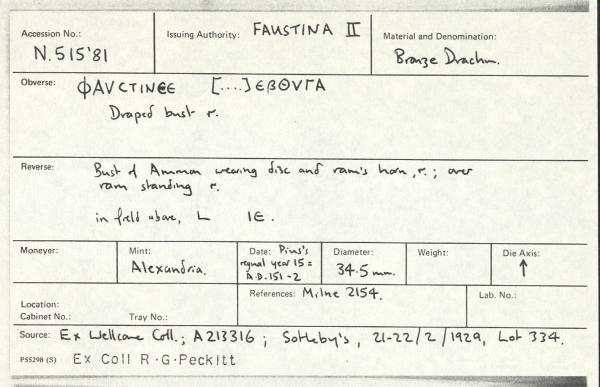 Accession No.: N.515'81
Issuing Authority: FAUSTINA II
Material and Denomination: Bronze Drachm.
Obverse: ΦAVCTINEE [....]EBΘVΓA
Draped bust r.
Reverse: Bust of Ammon wearing disc and ram's horn, r.; over
ram standing r.
in field above, L IE.
Moneyer:
Mint: Alexandria.
Date: Pius's
regnal year 15 =
A.D. 151-2
Diameter: 34.5 mm.
Weight:
Die Axis: ↑
Location:
Cabinet No.: Tray No.:
References: Milne 2154.
Lab. No.:
Source: Ex Wellcome Coll.; A213316; Sotheby's, 21-22/2/1929, Lot 334.
PS5298 (S) Ex Coll R.G.Peckitt